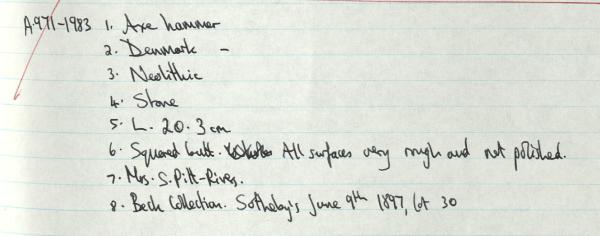 A971-1983 1. Axe hammer
2. Denmark -
3. Neolithic
4. Stone
5. L. 20.3 cm
6. Squared butt. All surfaces very rough and not polished.
7. Mrs. S. Pitt-Rivers.
8. Beck Collection. Sotheby's June 9th 1897, lot 30